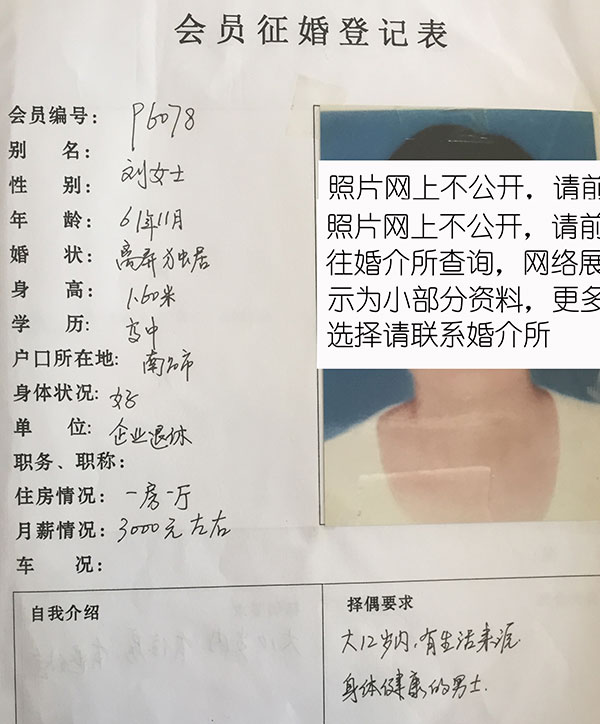 会员征婚登记表
会员编号: P6078
别 名: 刘女士
性 别:
年 龄: 61年11月
婚 状: 离异独居
身 高: 1.60米
学 历: 高中
户口所在地: 南宁市
身体状况: 好
单 位: 企业退休
职务、职称:
住房情况: 一房一厅
月薪情况: 3000元左右
车 况:
照片网上不公开，请前
照片网上不公开，请前
往婚介所查询，网络展
示为小部分资料，更多
选择请联系婚介所
自我介绍
择偶要求
大12岁内，有生活来源
身体健康的男士.